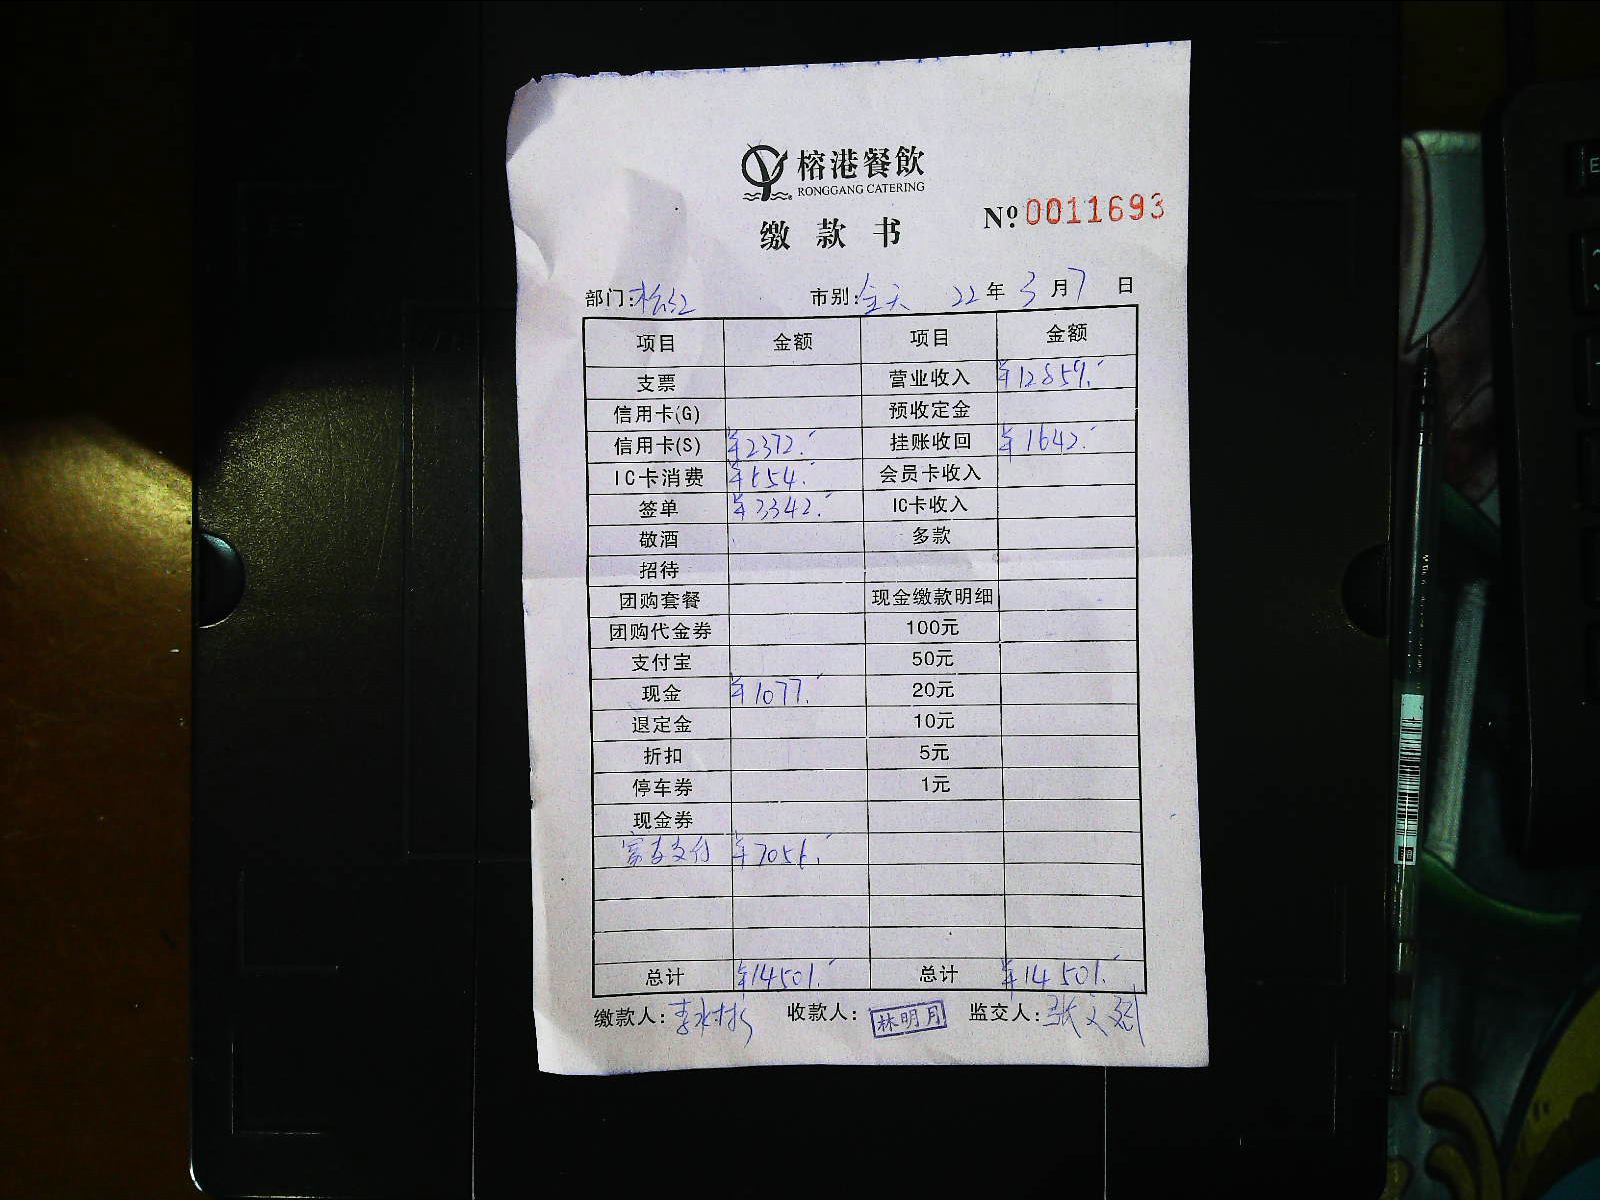 榕港餐飲
RONGGANG CATERING
缴款书
№ 0011693
部门: 市别:全天 22年3月7日
项目 金额 项目 金额
支票 营业收入 ¥12859.-
信用卡(G) 预收定金
信用卡(S) ¥2372.- 挂账收回 ¥1642.-
IC卡消费 ¥654.- 会员卡收入
签单 ¥3342.- IC卡收入
敬酒 多款
招待
团购套餐 现金缴款明细
团购代金券 100元
支付宝 50元
现金 ¥1077.- 20元
退定金 10元
折扣 5元
停车券 1元
现金券
富友支付 ¥7056.-
总计 ¥14501.- 总计 ¥14501.-
缴款人: 收款人:林明月 监交人: